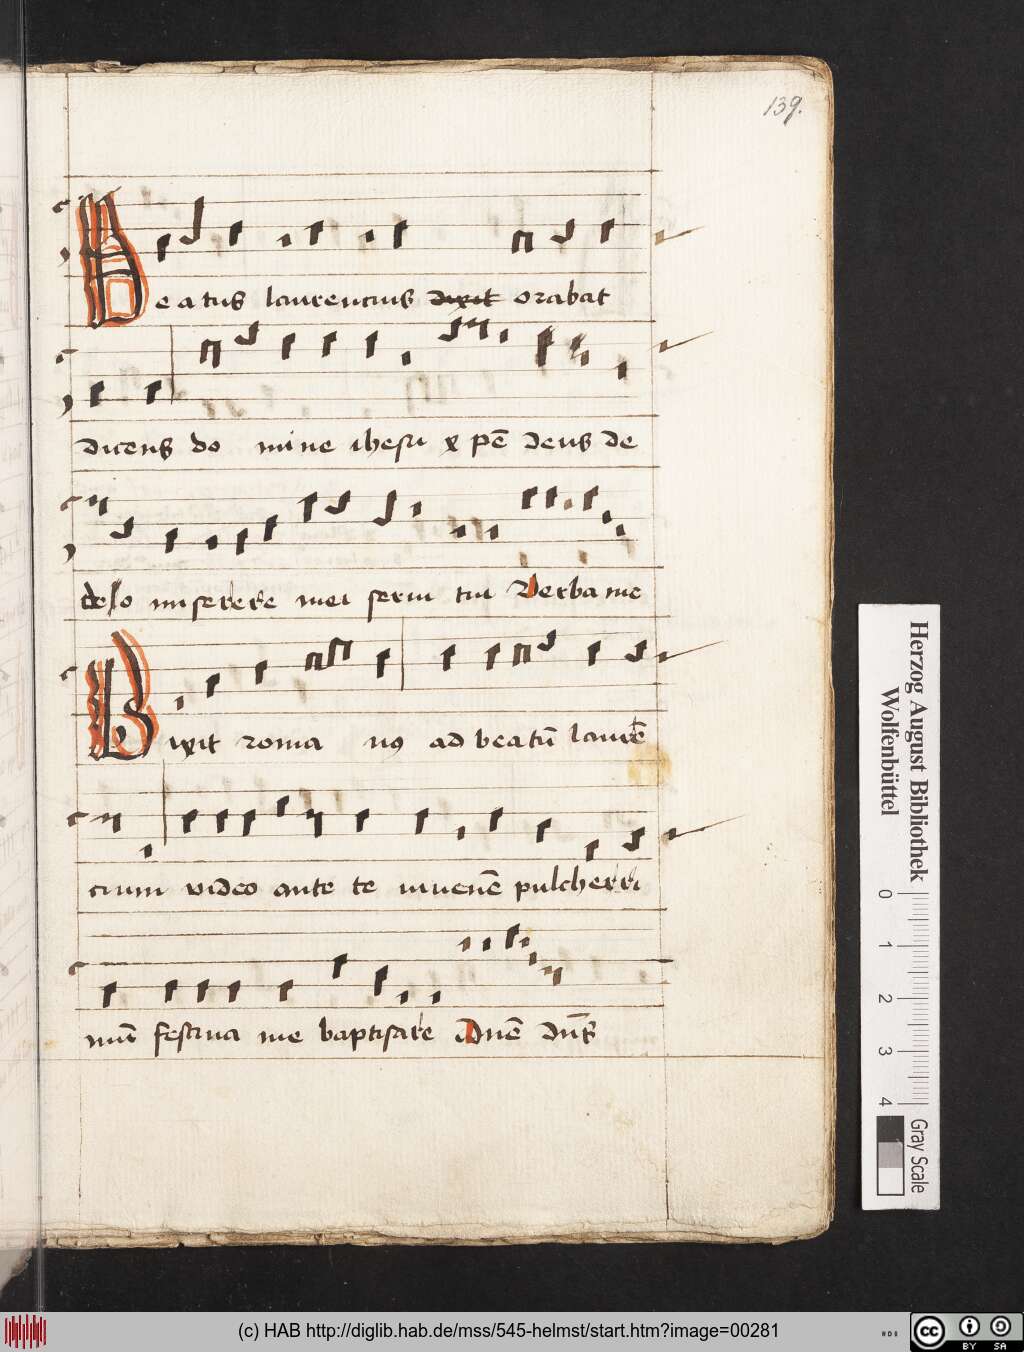 139.
Beatus laurencius dixit orabat
dicens do mine ihesu xpē deus de
deo miserere mei serui tui Verba me
Dixit roma nꝯ ad beatū laurē
cium video ante te iuuenē pulcherri
mū festina me baptisare Dnē dn̄r
Herzog August Bibliothek
Wolfenbüttel
0 1 2 3 4
Gray Scale
(c) HAB http://diglib.hab.de/mss/545-helmst/start.htm?image=00281
cc BY SA